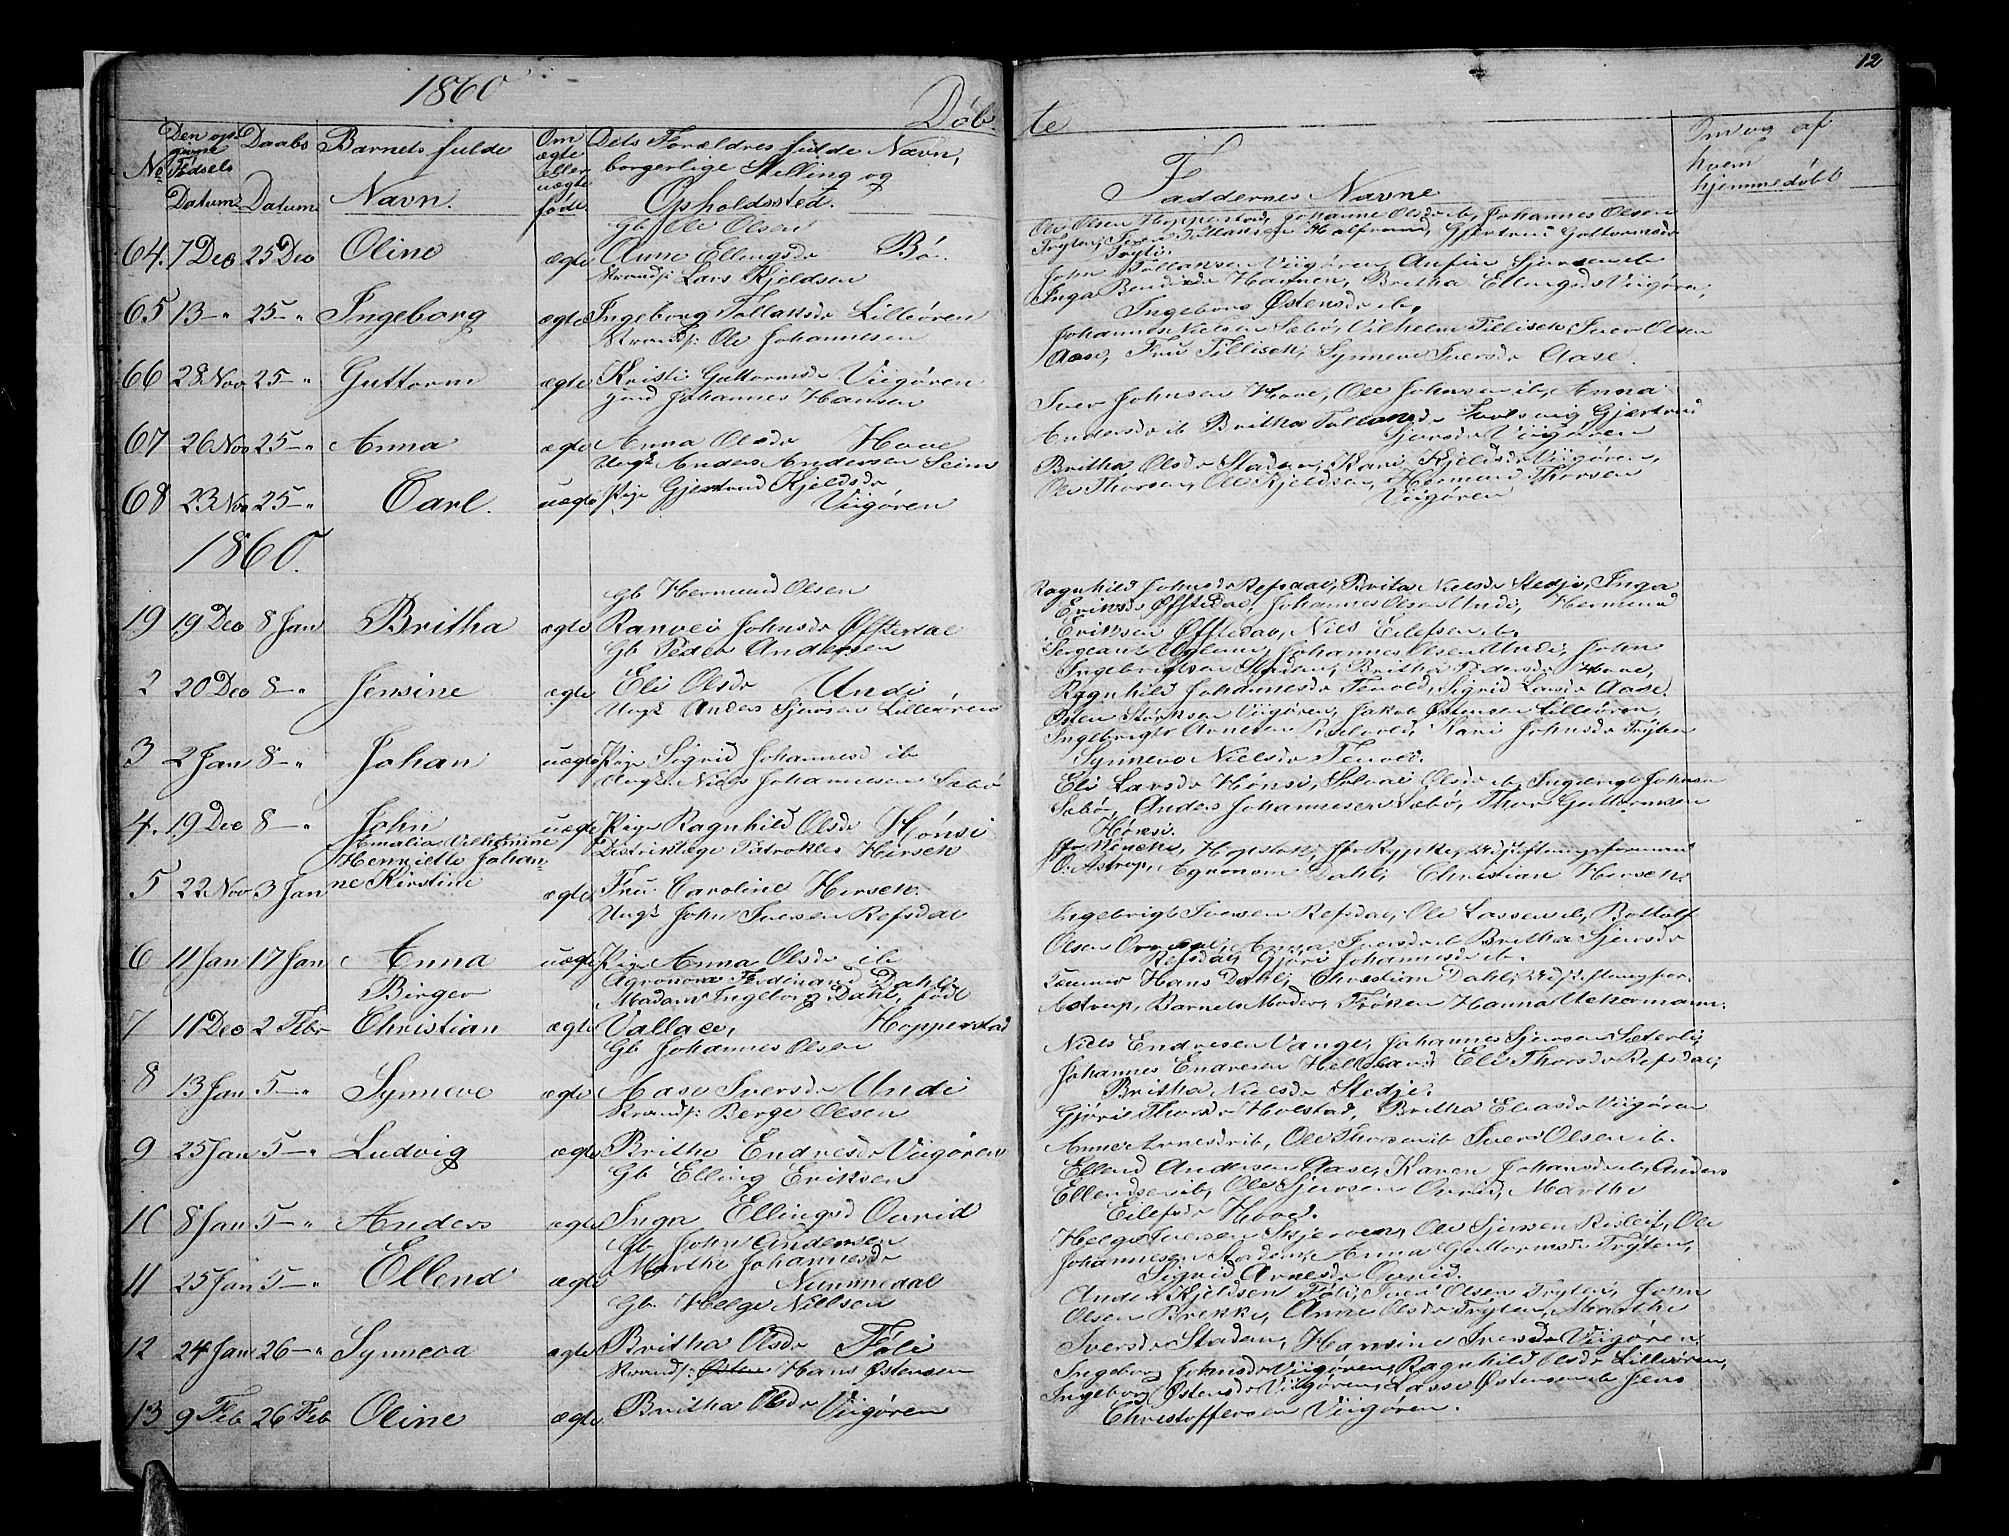 12
1860
Døb-
te
No
Den op-
givne
Fødsels
Datum
Daabs
Datum
Barnets fulde
Navn.
Om
ægte
eller
uægte
født.
Dets Forældres fulde Navn,
borgerlige Stilling og
Opholdssted.
Faddernes Navne
Om og af
hvem
hjemmedøbt
64. 7 Dec 25 Dec Oline ægte
Gb Ole Olsen
Anne Ellingsdr Bø.
Ole Olsen Hopperstad, Johanne Olsdr ib, Johannes Olsen
Tryten, Iver Tollaksen Gjertrud Guttormsdr
65 13 -" 25 -" Ingeborg ægte
Strandsf: Lars Kjeldsen
Ingeborg Tollaksdr Lilleøren
John Tollaksen Viigøren
Inga Havnen, Britha Ellingsdr Viigøren,
Ingeborg Østensdr ib.
66 28 Nov 25 -" Guttorm ægte
Strandsf: Ole Johannesen
Kristi Guttormsdr Viigøren
Johannes Nielsen Sæbø, Vilhelm Tillisch, Iver Olsen
Aase, Fru Tillisch, Synneve Iversdr Aase.
67 26 Nov 25 -" Anna ægte
Johannes Hansen
Anna Olsdr Hove
Iver Johnsen Hove, Ole Johnsen ib, Anna
Andersdr ib Britha Gjertrud
Sjursdr Viigøren
68 23 Nov 25 -" Carl. uægte
Ungk Anders Andersen Seim
Pige Gjertrud Kjeldsdr
Viigøren
Britha Olsdr Stadan, Kari Kjeldsdr Viigøren,
Ole Thorsen, Ole Kjeldsen, Hermund Thorsen
Viigøren
1860.
19 19 Dec 8 Jan Britha ægte
Gb Hermund Olsen
Ranvei Johnsdr Øfstedal
Ragnhild Johnsdr Refsdal, Brita Nielsdr Stedje, Inga
Eriksdr Øfstedal, Johannes Olsen Undi, Hermund
Eriksen Øfstedal, Niels Eilefsen ib.
2 20 Dec 8 -" Jensine ægte
Gb Peder Andersen
Eli Olsdr Undi
Sergeant Johannes Olsen Undi, John
Ingebrigtsen Stadan, Britha Pedersdr Hove,
Ragnhild Johannesdr Tenold, Sigrid Larsdr Aase.
3 2 Jan 8 -" Johan uægte
Ungk Anders Sjursen Lilleøren
Pige Sigrid Johannesd ib
Østen Størksen Viigøren, Jakob Østensen Lilleøren,
Ingebrigt Arnesen Kari Johnsdr Tryten
Synneve Nielsdr Tenold.
4. 19 Dec 8 -" John uægte
Ungk. Niels Johannesen Sæbø
Pige Ragnhild Olsdr Hønsi
Eli Larsdr Hønsi, Solvei Olsdr ib, Ingebrigt Johnsen
Sæbø, Anders Johannesen Sæbø, Thor Guttormsen
Hønsi.
5 22 Nov 3 Jan
Emalia Vilhelmine
Henriette Johan-
ne Kirstine ægte
Distriktlæge Patrokles Hirsch
Fru Caroline Hirsch.
O. Astrup, Agronom Dahl, Christian Hirsch.
6 11 Jan 17 Jan Anna uægte
Ungk John Iversen Refsdal
Pige Anna Olsdr ib
Ingebrigt Iversen Refsdal, Ole Lassen ib, Bottolf
Olsen Anna Iversdr ib Britha Sjursdr
Refsdal, Gjøri Johannesdr ib.
7 11 Dec 2 Febr
Birger
Christian ægte
Agronom Ferdinand Dahl
Madam Ingeborg Dahl, født
Vallace, Hopperstad
Hans Dahl, Christian Dahl,
Astrup, Barnets Moder, Frøken Hanna Uchermann.
8 13 Jan 5 -" Synneve ægte
Gb Johannes Olsen
Aase Iversdr Undi
Niels Endresen Vange, Johannes Sjursen Sæterli,
Johannes Endresen Helleland, Eli Thorsdr Refsdal,
Britha Nielsdr Stedje.
9 25 Jan 5 -" Ludvig ægte
Strandsf: Berge Olsen
Brithe Endresdr Viigøren
Gjøri Thorsdr Holstad, Britha Eliasdr Viigøren
Anne Arnesdr ib, Ole Thorsen ib Iver Olsen ib.
10 8 Jan 5 -" Anders ægte
Gb Elling Eriksen
Inga Ellingsd Ovrid
Ellend Andersen Aase, Karen Johansdr ib, Anders
Ellendsen ib, Ole Sjursen Ovrid, Marthe
Eilefsdr Hove.
11 25 Jan 5 -" Ellend ægte
Gb John Andersen
Marthe Johannesdr
Nummedal
Helge Iversen Skjerven, Ole Sjursen Risløf, Ole
Johannesen Stadan, Anna Guttormsdr Tryten,
Sigrid Arnesdr Ovrid.
12 24 Jan 26 -" Synneva ægte
Gb. Helge Nilsen
Britha Olsdr Føli
Anders Kjeldsen Føli, Iver Olsen Tryten, John
Olsen Brekke, Anne Olsdr Tryten, Marthe
Iversdr Stadan, Hansine Iversdr Viigøren
13 9 Feb 26 Feb Oline ægte
Strandsf: Hans Østensen
Britha Olsdr Viigøren
Ingeborg Johnsdr Viigøren, Ragnhild Olsdr Lilleøren,
Ingeborg Østensdr Viigøren, Lasse Østensen ib Jens
Christoffersen Viigøren.